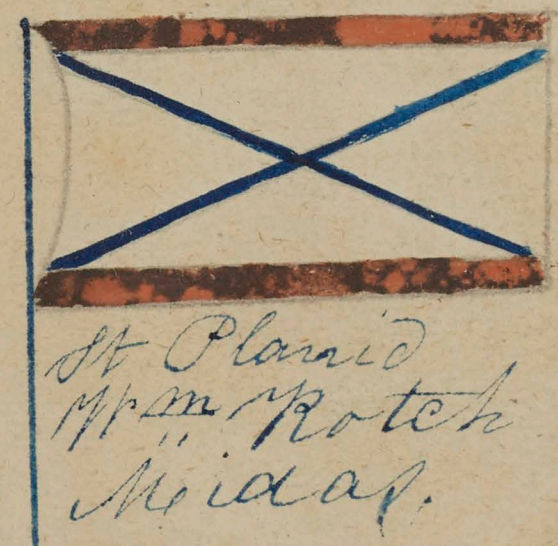 St Planid
Wm Rotch
Midas.